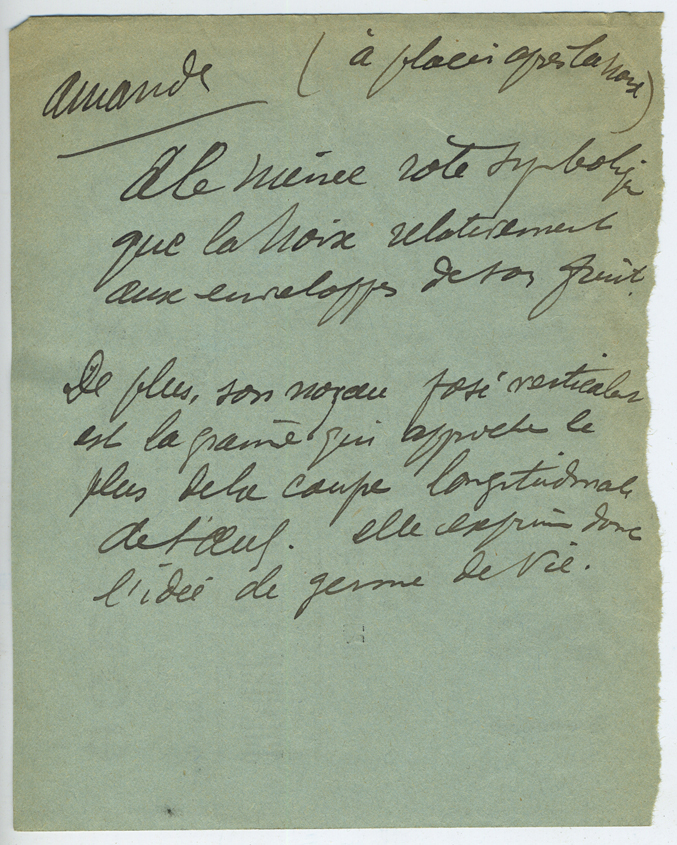 Amande
(à placer après la Noix)
A le même rôle symbolique
que la Noix relativement
aux enveloppes de son fruit.
De plus, son noyau posé vertical
est la graine qui approche le
plus de la coupe longitudinale
de l'Œuf. elle exprime donc
l'idée de germe de Vie.